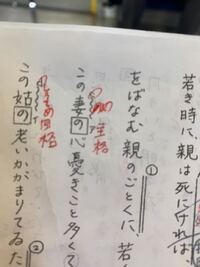 若き時に、親は死にければ
をばなむ親のごとくに、若
①
主格
この妻の心憂きこと多くて
この姑の老いかがまりてゐた
②